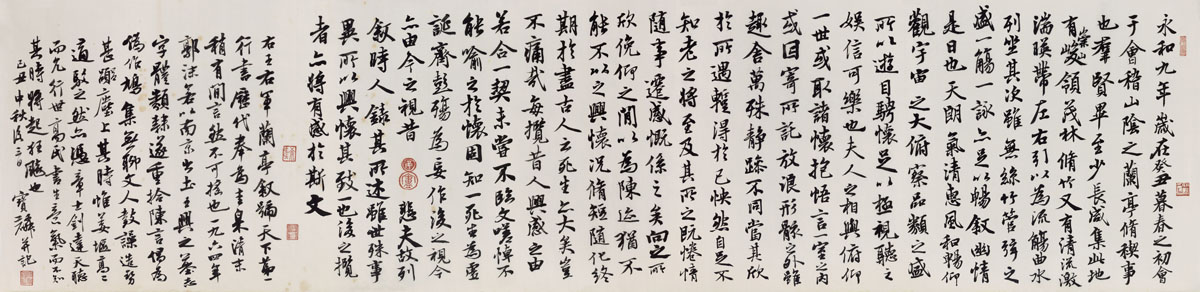 永和九年歲在癸丑暮春之初會
于會稽山陰之蘭亭脩稧事
也羣賢畢至少長咸集此地
有崇山峻領茂林脩竹又有清流激
湍暎帶左右引以為流觴曲水
列坐其次雖無絲竹管弦之
盛一觴一詠亦足以暢敘幽情
是日也天朗氣清惠風和暢仰
觀宇宙之大俯察品類之盛
所以遊目騁懷足以極視聽之
娛信可樂也夫人之相與俯仰
一世或取諸懷抱悟言一室之內
或因寄所託放浪形骸之外雖
趣舍萬殊靜躁不同當其欣
於所遇蹔得於己怏然自足不
知老之將至及其所之既惓情
隨事遷感慨係之矣向之所
欣俛仰之間以為陳迹猶不
能不以之興懷況脩短隨化終
期於盡古人云死生亦大矣豈
不痛哉每攬昔人興感之由
若合一契未嘗不臨文嗟悼不
能喻之於懷固知一死生為虛
誕齊彭殤為妄作後之視今
亦由今之視昔 悲夫故列
敘時人錄其所述雖世殊事
異所以興懷其致一也後之攬
者亦將有感於斯文
右王右軍蘭亭敘號天下第一
行書歷代奉為圭臬清末
稍有間言然不可撼也一九六四年
郭沫若以南京出土王興之墓志
字體類隸遂重拾陳言謂為
偽作鳩集無聊文人鼓譟造勢
甚囂塵上其時惟姜堰高二
適駁之然亦章士釗達天聽
而允行世高氏書生意氣而不知
其時將起狂飈也 寶麟并記
己丑中秋後三日